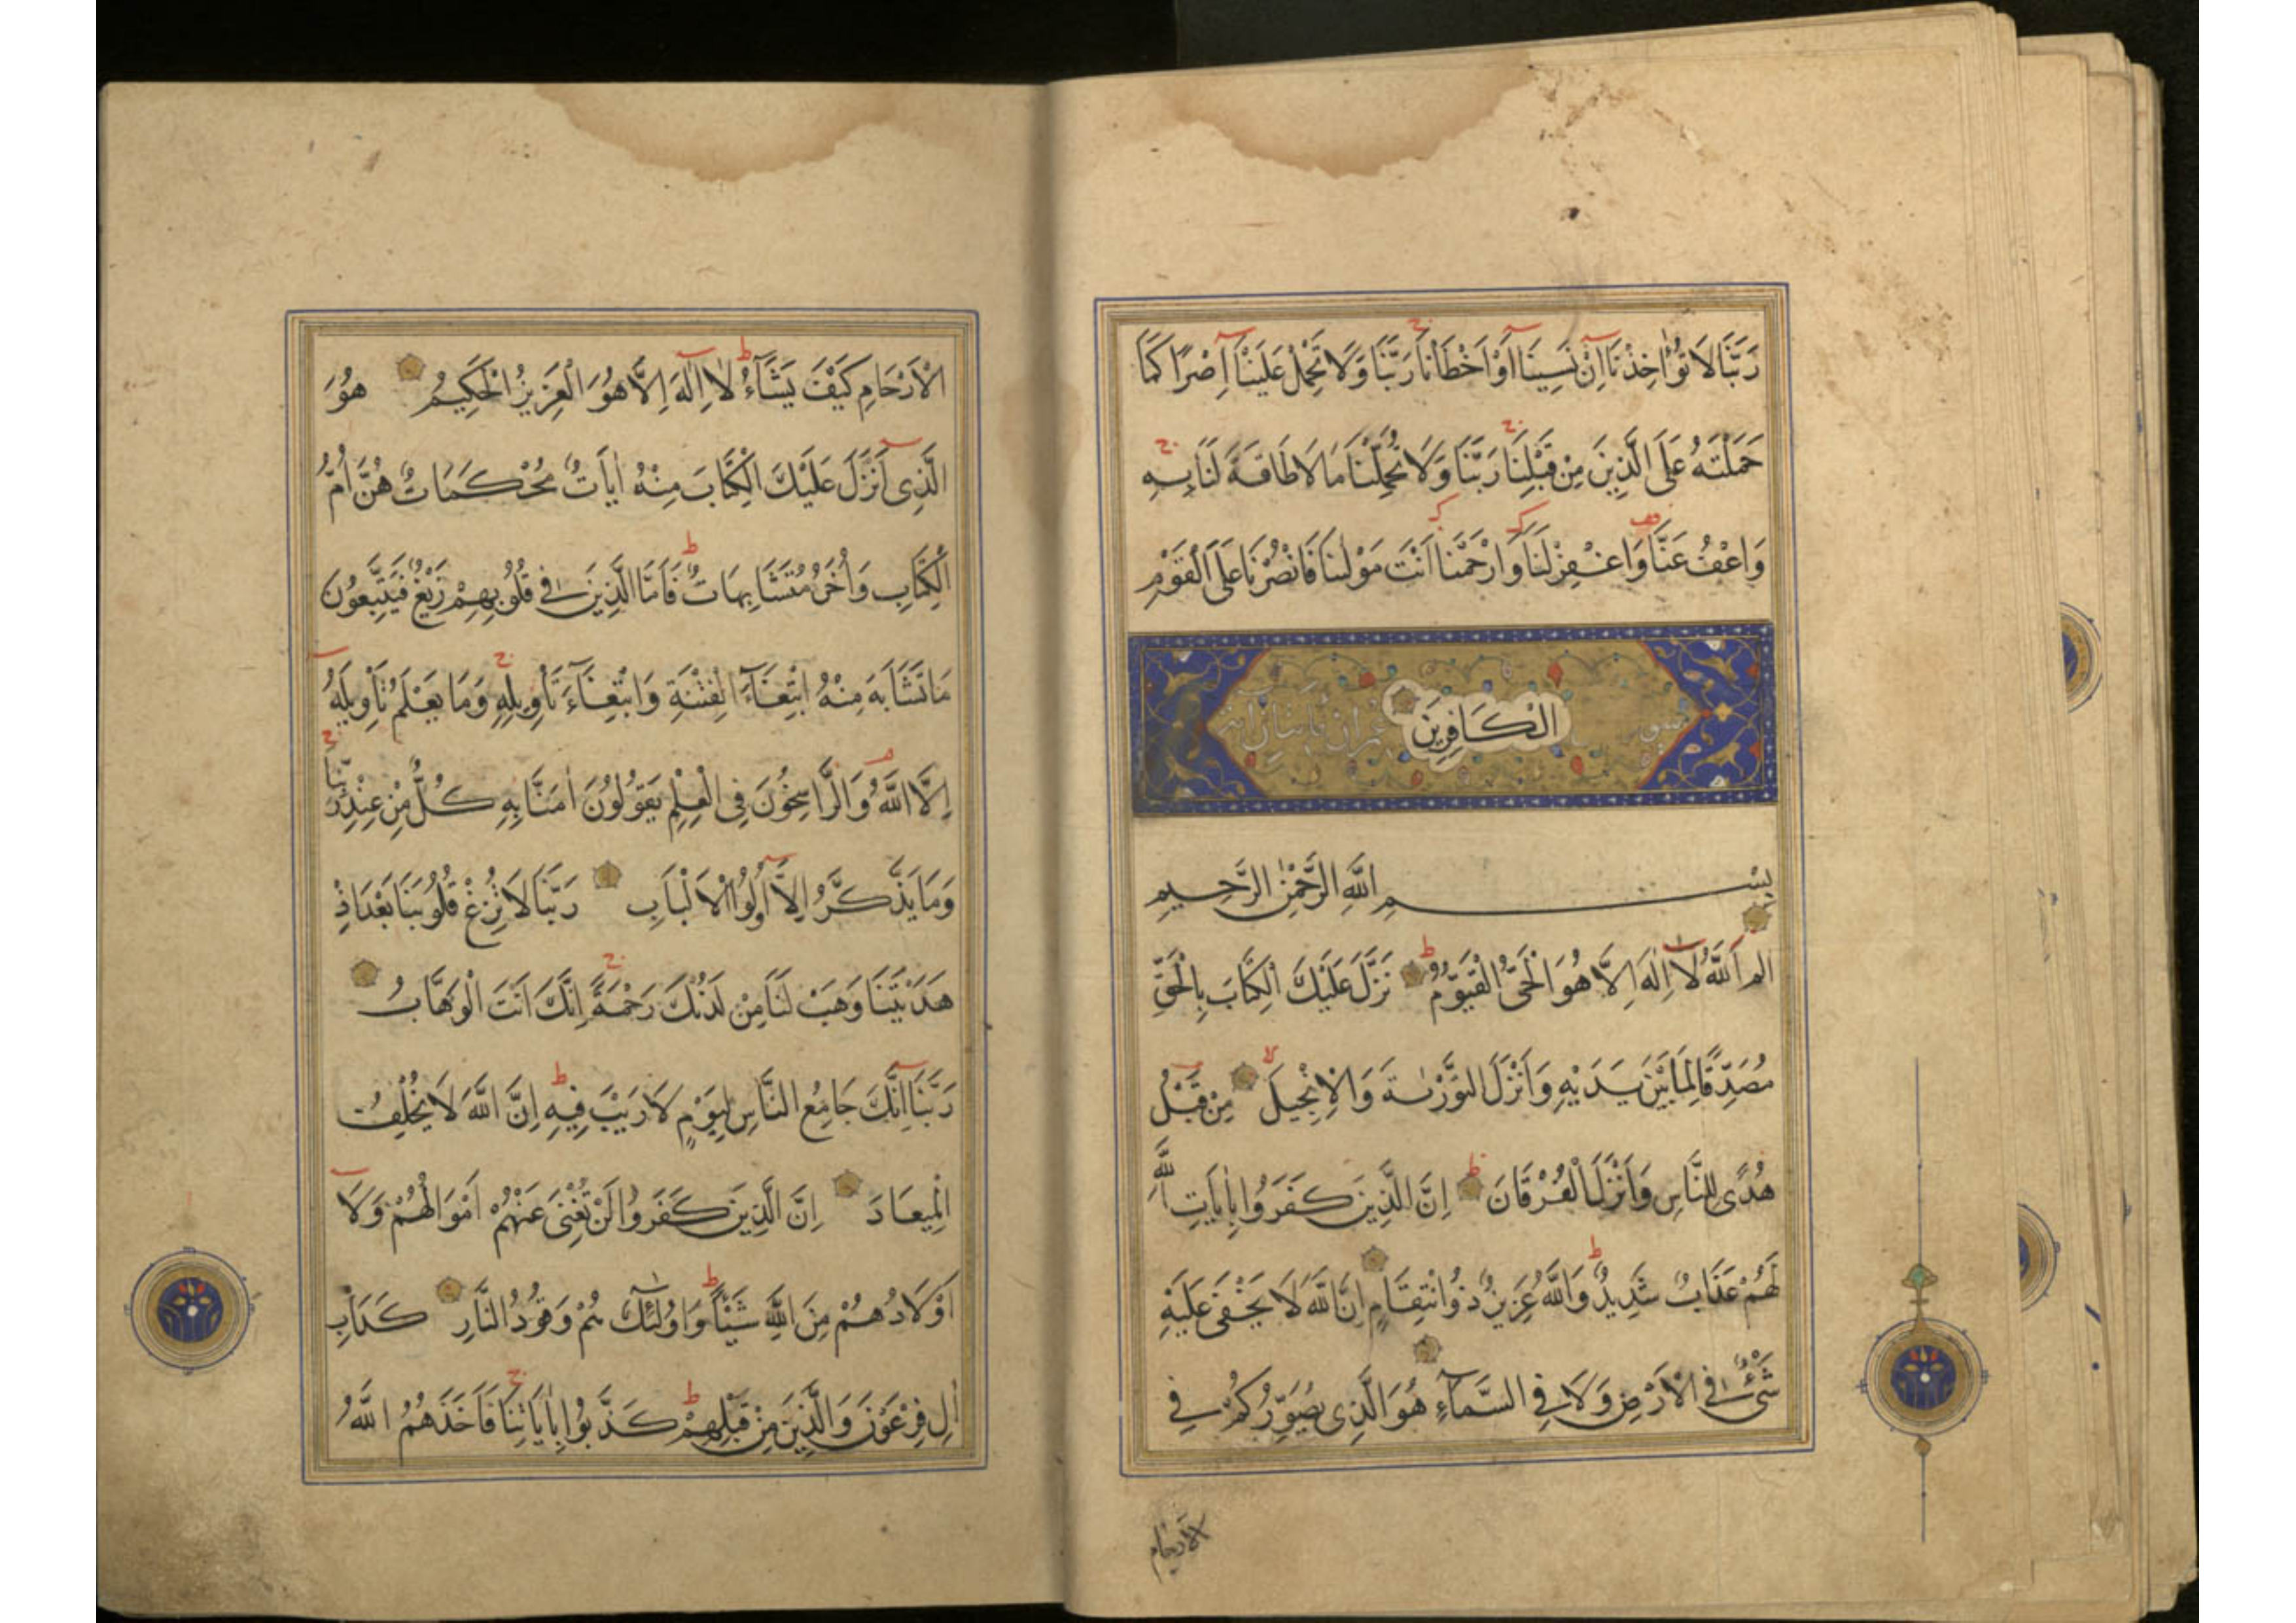 رَبَّنَا لَا تُؤَاخِذْنَا اِنْ نَسِينَا اَوْ اَخْطَأْنَا رَبَّنَا وَلَا تَحْمِلْ عَلَيْنَا اِصْرًا كَمَا
حَمَلْتَهُ عَلَى الَّذِينَ مِنْ قَبْلِنَا رَبَّنَا وَلَا تُحَمِّلْنَا مَا لَا طَاقَةَ لَنَا بِهِ
وَاعْفُ عَنَّا وَاغْفِرْ لَنَا وَارْحَمْنَا اَنْتَ مَوْلٰنَا فَانْصُرْنَا عَلَى الْقَوْمِ
الْكَافِرِينَ
بِسْمِ اللَّهِ الرَّحْمٰنِ الرَّحِيمِ
الم اَللَّهُ لَا اِلٰهَ اِلَّا هُوَ الْحَىُّ الْقَيُّومُ نَزَّلَ عَلَيْكَ الْكِتَابَ بِالْحَقِّ
مُصَدِّقًا لِمَا بَيْنَ يَدَيْهِ وَاَنْزَلَ التَّوْرٰىةَ وَالْاِنْجِيلَ مِنْ قَبْلُ
هُدًى لِلنَّاسِ وَاَنْزَلَ الْفُرْقَانَ اِنَّ الَّذِينَ كَفَرُوا بِاٰيَاتِ اللَّهِ
لَهُمْ عَذَابٌ شَدِيدٌ وَاللَّهُ عَزِيزٌ ذُو انْتِقَامٍ اِنَّ اللَّهَ لَا يَخْفَى عَلَيْهِ
شَىْءٌ فِى الْاَرْضِ وَلَا فِى السَّمَآءِ هُوَ الَّذِى يُصَوِّرُكُمْ فِى
الارحام
الْاَرْحَامِ كَيْفَ يَشَآءُ لَا اِلٰهَ اِلَّا هُوَ الْعَزِيزُ الْحَكِيمُ هُوَ
الَّذِى اَنْزَلَ عَلَيْكَ الْكِتَابَ مِنْهُ اٰيَاتٌ مُحْكَمَاتٌ هُنَّ اُمُّ
الْكِتَابِ وَاُخَرُ مُتَشَابِهَاتٌ فَاَمَّا الَّذِينَ فِى قُلُوبِهِمْ زَيْغٌ فَيَتَّبِعُونَ
مَا تَشَابَهَ مِنْهُ ابْتِغَآءَ الْفِتْنَةِ وَابْتِغَآءَ تَأْوِيلِهِ وَمَا يَعْلَمُ تَأْوِيلَهُ
اِلَّا اللَّهُ وَالرَّاسِخُونَ فِى الْعِلْمِ يَقُولُونَ اٰمَنَّا بِهِ كُلٌّ مِنْ عِنْدِ رَبِّنَا
وَمَا يَذَّكَّرُ اِلَّا اُولُوا الْاَلْبَابِ رَبَّنَا لَا تُزِغْ قُلُوبَنَا بَعْدَ اِذْ
هَدَيْتَنَا وَهَبْ لَنَا مِنْ لَدُنْكَ رَحْمَةً اِنَّكَ اَنْتَ الْوَهَّابُ
رَبَّنَا اِنَّكَ جَامِعُ النَّاسِ لِيَوْمٍ لَا رَيْبَ فِيهِ اِنَّ اللَّهَ لَا يُخْلِفُ
الْمِيعَادَ اِنَّ الَّذِينَ كَفَرُوا لَنْ تُغْنِىَ عَنْهُمْ اَمْوَالُهُمْ وَلَا
اَوْلَادُهُمْ مِنَ اللَّهِ شَيْئًا وَاُولٰئِكَ هُمْ وَقُودُ النَّارِ كَدَاْبِ
اٰلِ فِرْعَوْنَ وَالَّذِينَ مِنْ قَبْلِهِمْ كَذَّبُوا بِاٰيَاتِنَا فَاَخَذَهُمُ اللَّهُ